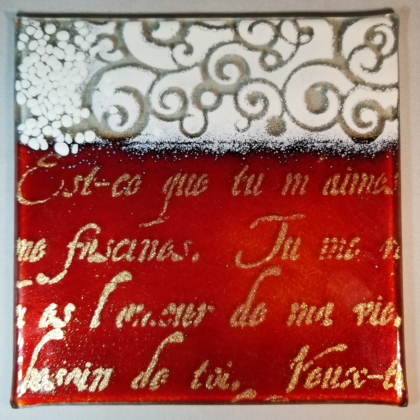 Est-ce que tu m'aimes
me fascines. Tu me
as l'amour de ma vie.
besoin de toi. Veux-t